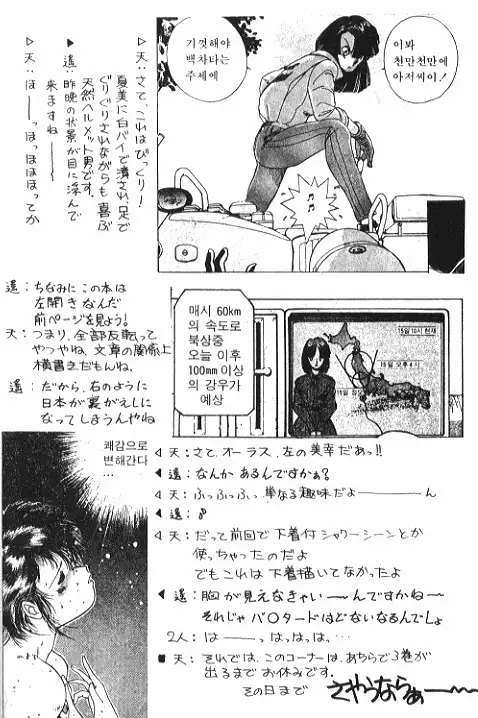 이봐
천만천만에
아저씨이!
기껏해야
백차타는
주제에
▷天:さて、これはびっくり!
夏美に白バイで潰され足で
ぐりぐりされながらも喜ぶ
天然ヘルメット男です。
▶遥:昨晩の状景が目に浮んで
来ますね———
▷天:ほ——っほっほほほってか
遥:ちなみにこの本は
左開きなんだ
前ページを見よう!
天:つまり、全部反転って
やつやね、文章の関係上
横書きだもんね。
遥:だから、右のように
日本が裏がえしに
なってしまうんやね
매시 60km
의 속도로
북상중
오늘 이후
100mm 이상
의 강우가
예상
15일 10시 현재
15일 오후 4시
쾌감으로
변해간다
...
◁天:さて、オーラス、左の美幸だあっ!!
◀遥:なんかあるんですかぁ?
◁天:ふっふっふっ、単なる趣味だよ————ん
◀遥:
◁天:だって前回で下着付シャワーシーンとか
使っちゃったのだよ
でもこれは下着描いてなかったよ
◀遥:胸が見えなきゃい〜〜んですかね〜
それじゃバ〇タードはどないなるんでしょ
2人:は——っはっはっは、…
■天:それでは、このコーナーは、あちらで3巻が
出るまでお休みです。
その日まで さやうならぁ〜〜